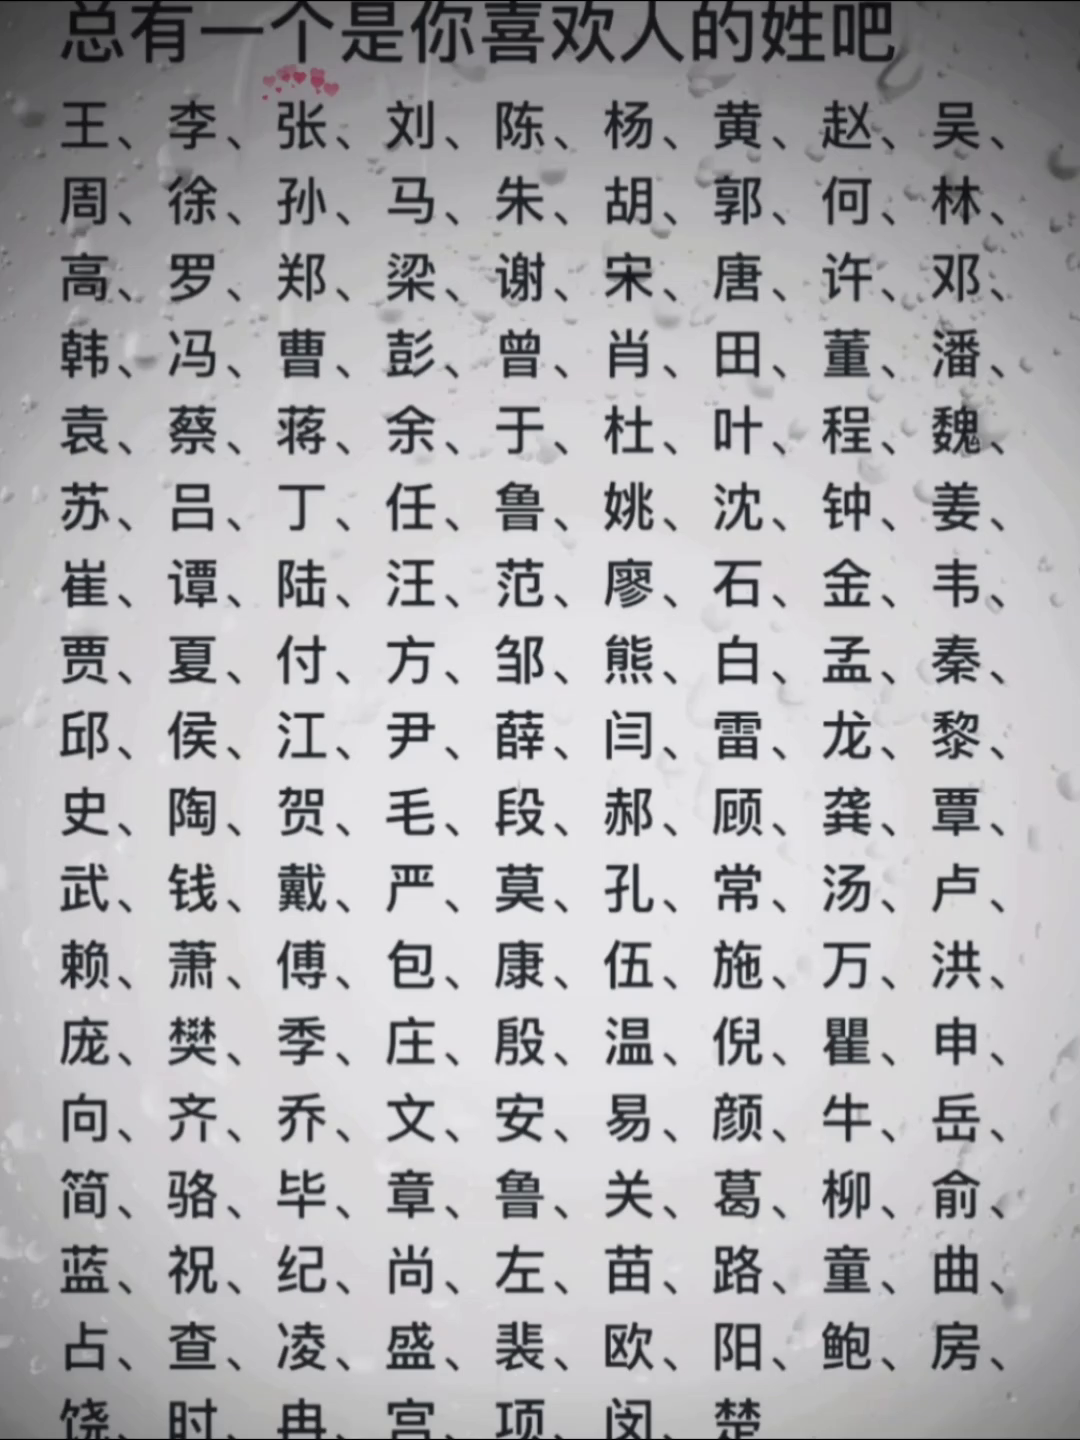 总有一个是你喜欢人的姓吧
王、李、张、刘、陈、杨、黄、赵、吴、
周、徐、孙、马、朱、胡、郭、何、林、
高、罗、郑、梁、谢、宋、唐、许、邓、
韩、冯、曹、彭、曾、肖、田、董、潘、
袁、蔡、蒋、余、于、杜、叶、程、魏、
苏、吕、丁、任、鲁、姚、沈、钟、姜、
崔、谭、陆、汪、范、廖、石、金、韦、
贾、夏、付、方、邹、熊、白、孟、秦、
邱、侯、江、尹、薛、闫、雷、龙、黎、
史、陶、贺、毛、段、郝、顾、龚、覃、
武、钱、戴、严、莫、孔、常、汤、卢、
赖、萧、傅、包、康、伍、施、万、洪、
庞、樊、季、庄、殷、温、倪、瞿、申、
向、齐、乔、文、安、易、颜、牛、岳、
简、骆、毕、章、鲁、关、葛、柳、俞、
蓝、祝、纪、尚、左、苗、路、童、曲、
占、查、凌、盛、裴、欧、阳、鲍、房、
饶、时、冉、宫、项、闵、楚